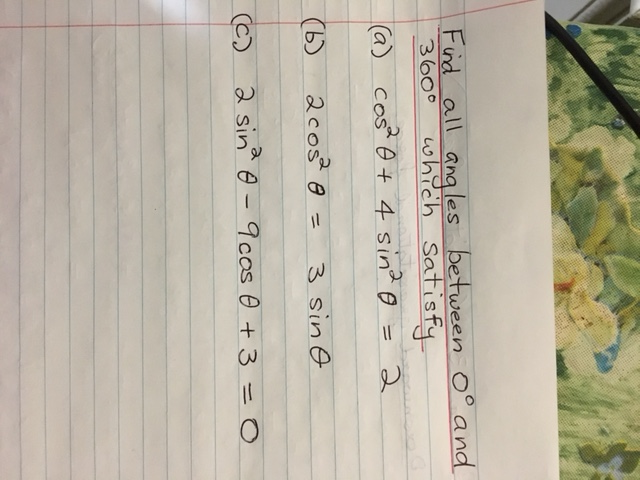 Find all angles between 0° and
360° which satisfy
(a) cos² θ + 4 sin² θ = 2
(b) 2cos² θ = 3 sinθ
(c) 2 sin² θ - 9cos θ + 3 = 0